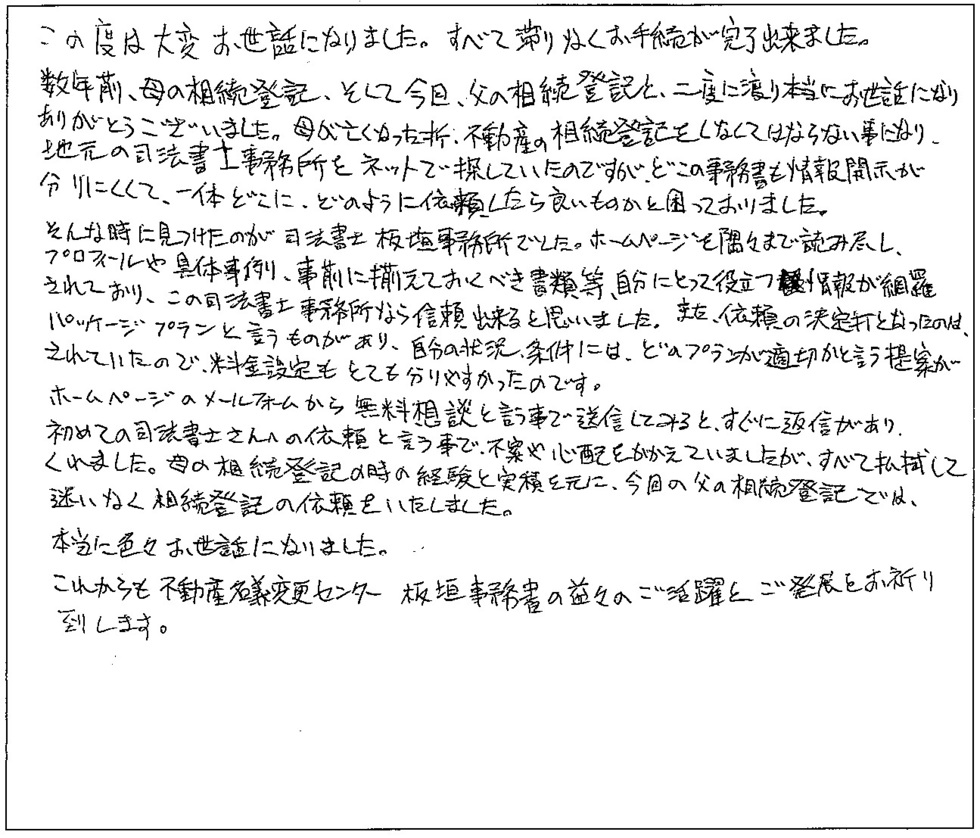 この度は大変お世話になりました。すべて滞りなくお手続が完了出来ました。
数年前、母の相続登記、そして今回、父の相続登記と、二度に渡り本当にお世話になり
ありがとうございました。母が亡くなった折、不動産の相続登記をしなくてはならない事になり、
地元の司法書士事務所をネットで探していたのですが、どこの事務書も情報開示が
分りにくくて、一体どこに、どのように依頼したら良いものかと困っておりました。
そんな時に見つけたのが司法書士板垣事務所でした。ホームページを隅々まで読み尽し、
プロフィールや具体事例、事前に揃えておくべき書類等、自分にとって役立つ情報が網羅
されており、この司法書士事務所なら信頼出来ると思いました。また、依頼の決定打となったのは、
パッケージプランと言うものがあり、自分の状況、条件には、どのプランが適切かと言う提案が
されていたので、料金設定もとても分りやすかったのです。
ホームページのメールフォームから無料相談と言う事で送信してみると、すぐに返信があり、
初めての司法書士さんへの依頼と言う事で、不案や心配をかかえていましたが、すべて払拭して
くれました。母の相続登記の時の経験と実積を元に、今回の父の相続登記では、
迷いなく相続登記の依頼をいたしました。
本当に色々お世話になりました。
これからも不動産名義変更センター 板垣事務書の益々のご活躍とご発展をお祈り
到します。